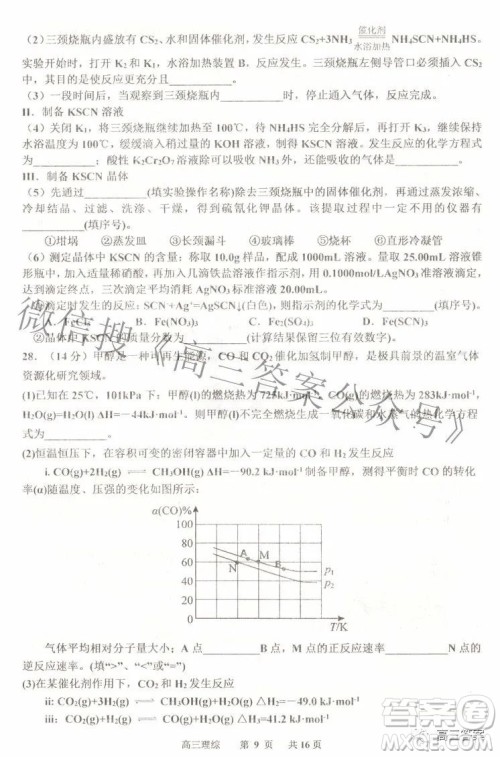 (2)三颈烧瓶内盛放有 CS₂、水和固体催化剂,发生反应 CS₂+3NH₃ 催化剂 水浴加热 NH₄SCN+NH₄HS。
实验开始时,打开 K₂和 K₁,水浴加热装置 B,发生反应。三颈烧瓶左侧导管口必须插入 CS₂
中,其目的是使反应更充分且
(3)一段时间后,当观察到三颈烧瓶内 时,停止通入气体,反应完成。
II.制备 KSCN 溶液
(4)关闭 K₁,将三颈烧瓶继续加热至 100℃,待 NH₄HS 完全分解后,打开 K₃,继续保持
水浴温度为 100℃,缓缓滴入稍过量的 KOH 溶液,发生反应。发生反应的化学方程式
为 ;酸性 K₂Cr₂O₇ 溶液可以吸收的大气污染气体是 。
III.制备 KSCN 晶体
(5)先通过 (填实验操作名称)除去三颈烧瓶中的固体催化剂,再通过蒸发浓缩、
冷却结晶、过滤、洗涤、干燥,得到硫氰化钾晶体。该提取过程中一定不用的仪器有
(填序号)。
①坩埚 ②蒸发皿 ③长颈漏斗 ④玻璃棒 ⑤烧杯 ⑥直形冷凝管
(6)测定晶体中 KSCN 的含量:称取 10.0g 样品,配成 1000mL 溶液。量取 25.00mL 溶液锥
形瓶中,加入适量稀硝酸,再加入几滴铁盐溶液作指示剂,用 0.1000mol/LAgNO₃ 标准溶
液滴定,达到滴定终点时消耗 AgNO₃ 标准溶液 20.00mL。
①滴定时发生反应:SCN⁻+Ag⁺=AgSCN↓(白色),则指示剂的化学式为 (填序号)。
Fe(NO₃)
②晶体中 KSCN 的质量分数为 (计算结果保留三位有效数字)。
28.(14 分)甲醇是一种可再生能源,CO 和 CO₂ 催化加氢制甲醇,是极具前景的温室气体
资源化研究领域。
(1)已知在 25℃,101kPa 下:甲醇(l)的燃烧热为 725kJ·mol⁻¹,CO(g)的燃烧热为 283kJ·mol⁻¹,
H₂O(g)=H₂O(l) ΔH=−44kJ·mol⁻¹,则甲醇(l)不完全燃烧生成一氧化碳和水蒸气的热化学方程
式为 。
(2)恒温恒压下,在容积可变的密闭容器中加入一定量的 CO 和 H₂ 发生反应
i. CO(g)+2H₂(g) ⇌ CH₃OH(g) ΔH=−90.2 kJ·mol⁻¹制备甲醇,测得平衡时 CO 的转化
率(α)随温度、压强的变化如图所示。
α(CO)/%
100
80
60
40
20
0
N
A
M
B
p₁
p₂
T/K
气体平均相对分子质量:A 点 B 点(填“>”、“<”、“=”)。M 点的正反应速率 N 点的
逆反应速率。(填“>”、“<”、“=”)
(3)在某催化剂作用下,CO₂ 和 H₂ 发生反应:
ii: CO₂(g)+3H₂(g) ⇌ CH₃OH(g)+H₂O(g) ΔH₂=−49.0 kJ·mol⁻¹
iii: CO₂(g)+H₂(g) ⇌ CO(g)+H₂O(g) ΔH₃=+41.2 kJ·mol⁻¹
高三理综 第 9 页 共 16 页
微信搜《高三答案公众号》
答案圈
高三答案